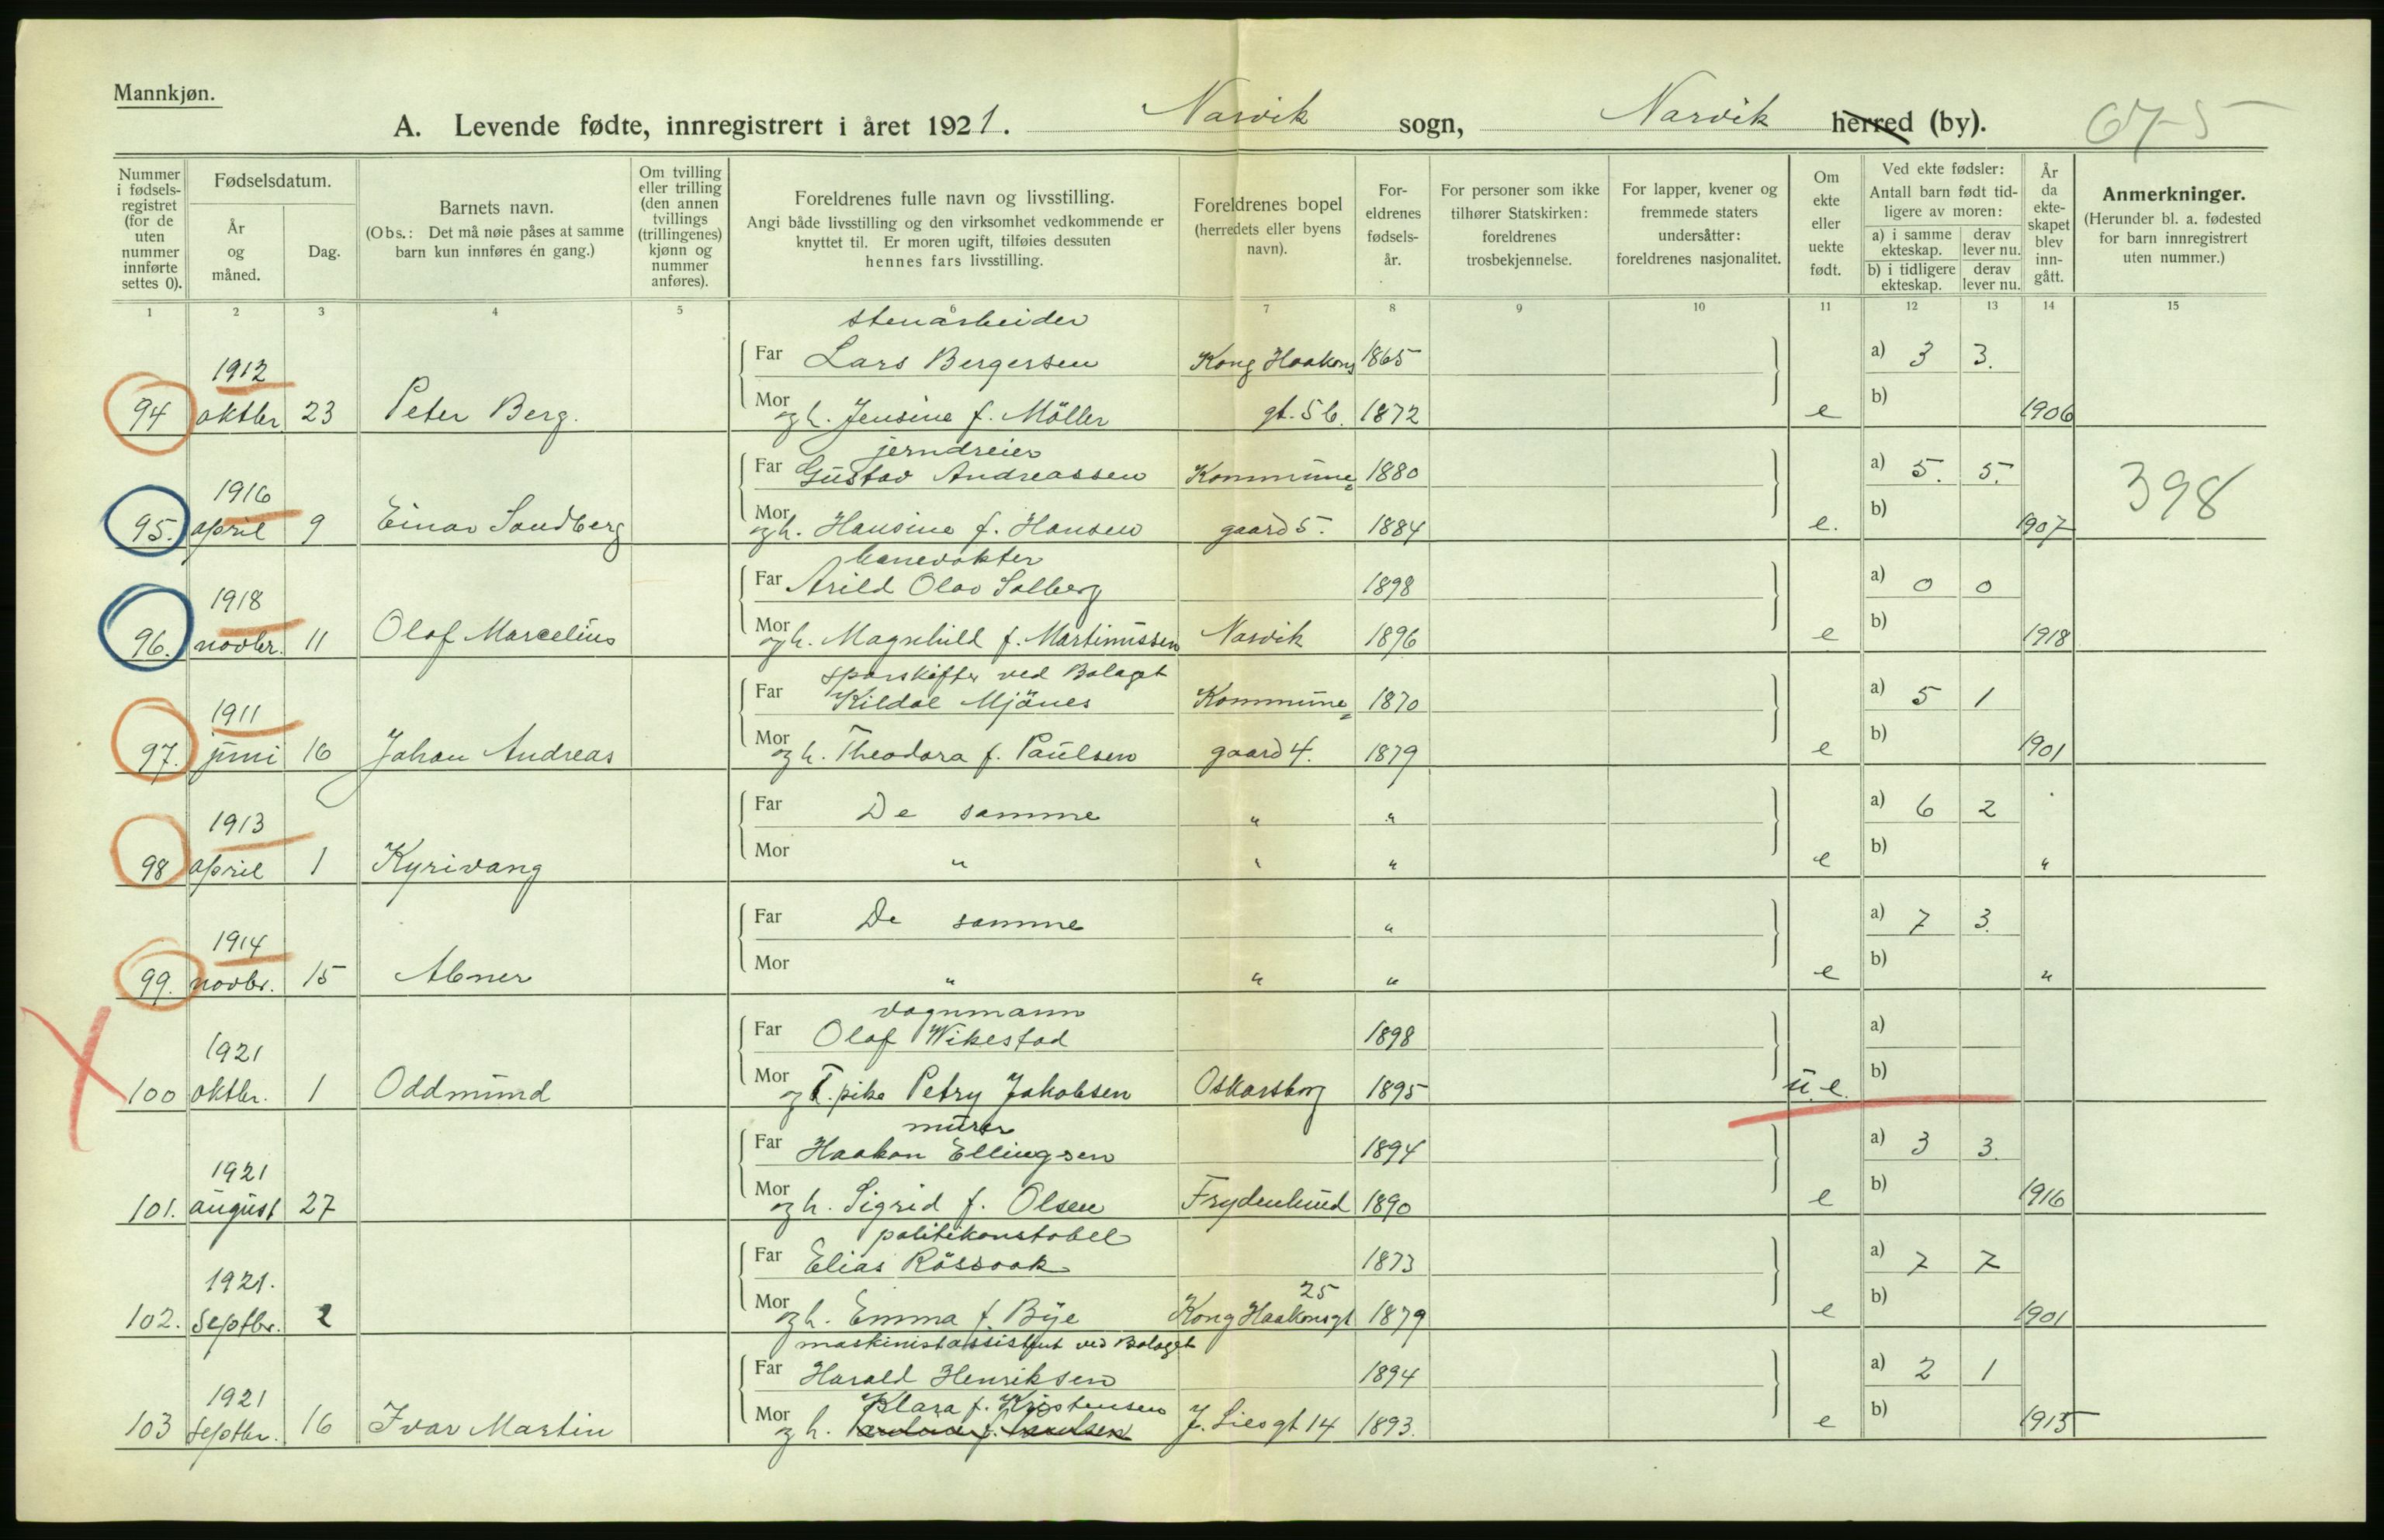 Mannkjøn.
A. Levende fødte, innregistrert i året 1921. Narvik sogn, Narvik herred (by). 675
Nummer i fødsels-registret (for de uten nummer innførte settes 0).
Fødselsdatum.
År og måned.
Dag.
Barnets navn.
(Obs.: Det må nøie påses at samme barn kun innføres én gang.)
Om tvilling eller trilling (den annen tvillings (trillingenes) kjønn og nummer anføres).
Foreldrenes fulle navn og livsstilling.
Angi både livsstilling og den virksomhet vedkommende er knyttet til. Er moren ugift, tilføies dessuten hennes fars livsstilling.
Foreldrenes bopel (herredets eller byens navn).
For-eldrenes fødsels-år.
For personer som ikke tilhører Statskirken: foreldrenes trosbekjennelse.
For lapper, kvener og fremmede staters undersåtter: foreldrenes nasjonalitet.
Om ekte eller uekte født.
Ved ekte fødsler:
Antall barn født tid-ligere av moren:
a) i samme ekteskap. derav lever nu.
b) i tidligere ekteskap. derav lever nu.
År da ekte-skapet blev inn-gått.
Anmerkninger.
(Herunder bl. a. fødested for barn innregistrert uten nummer.)
1 2 3 4 5 6 7 8 9 10 11 12 13 14 15
stenarbeider
1912 Far Lars Bergersen Kong Haakons 1865 a) 3 3.
94 oktbr 23 Peter Berg. Mor og h. Jensine f. Möller gt. 56. 1872 e b) 1906
jerndreier
1916 Far Gustav Andreassen Kommune= 1880 a) 5. 5. 398
95. april 9 Einar Sandberg Mor og h. Hansine f. Hansen gaard 5. 1884 e. b) 1907
banevokter
1918 Far Arild Olav Solberg 1898 a) 0 0
96. novbr. 11 Olof Marcelius Mor og h. Magnhild f. Martinussen Narvik 1896 e b) 1918
sporskifter ved Bolaget
1911 Far Kildal Mjönes Kommune= 1870 a) 5 1
97. juni 16 Johan Andreas Mor og h. Theodora f. Paulsen gaard 4. 1879 e b) 1901
1913 Far De samme " " a) 6 2
98 april 1 Kyrivang Mor " " " e b) "
1914 Far De samme " a) 7 3.
99. novbr. 15 Abner Mor " " " e b) "
vognmann
1921 Far Olaf Wikestad 1898 a)
100 oktbr. 1 Oddmund Mor og T. pike Petry Jakobsen Oskarsborg 1895 u.e. b)
murer
1921 Far Haakon Ellingsen 1894 a) 3 3.
101. august 27 Mor og h. Sigrid f. Olsen Frydenlund 1890 e b) 1916
politikonstabel
1921. Far Elias Rössvok 1873 a) 7 7
25
102. Septbr. 2 Mor og h. Emma f. Bye Kong Haakonsgt 1879 e b) 1901
maskinistassistent ved Bolaget
1921 Far Harald Henriksen 1894 a) 2 1
Klara f. Kristensen
103 Septbr. 16 Ivar Martin Mor og h. J. Liesgt 14 1893. e b) 1915